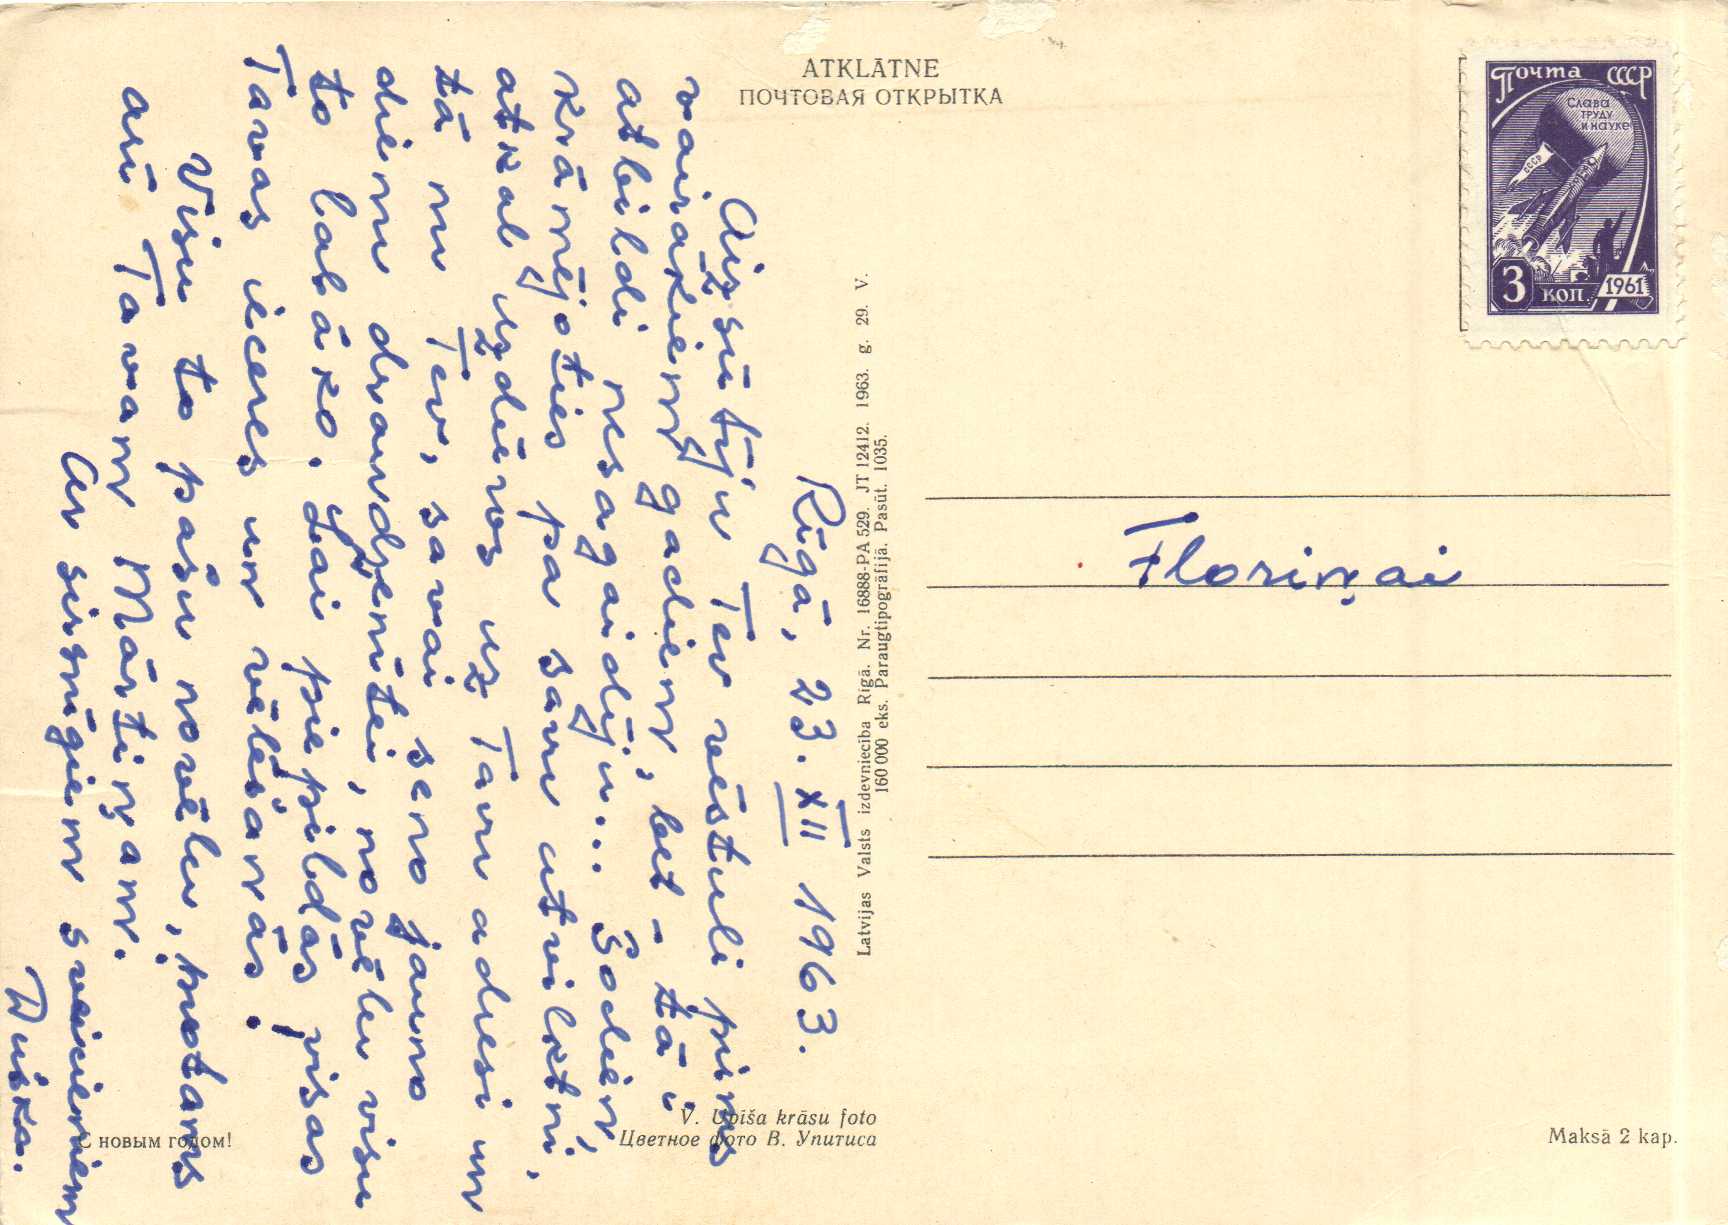 ATKLĀTNE
ПОЧТОВАЯ ОТКРЫТКА
Почта СССР
Слава
труду
и науке
СССР
3 коп. 1961
Rīgā, 23. XII 1963.
Aizsūtīju Tev vēstuli pirms
vairākiem gadiem, bet – tā i
atbildi nesagaidīju... Šodien,
krāmējoties pa savu atvilktni,
atkal uzdūros uz Tavu adresi un
tā nu Tev, savai seno jauno
dienu draudzenītei, novēlu visu
to labāko. Lai piepildās visas
Tavas ieceres un vēlēšanās!
Visu to pašu novēlu, protams,
arī Tavam Mārtiņam.
Ar sirsnīgiem sveicieniem
Duška.
Floriņai
Latvijas Valsts izdevniecība Rīgā. Nr. 16888-PA 529. JT 12412. 1963. g. 29. V.
160 000 eks. Paraugtipogrāfijā. Pasūt. 1035.
С новым годом!
V. Upīša krāsu foto
Цветное фото В. Упитиса
Maksā 2 kap.